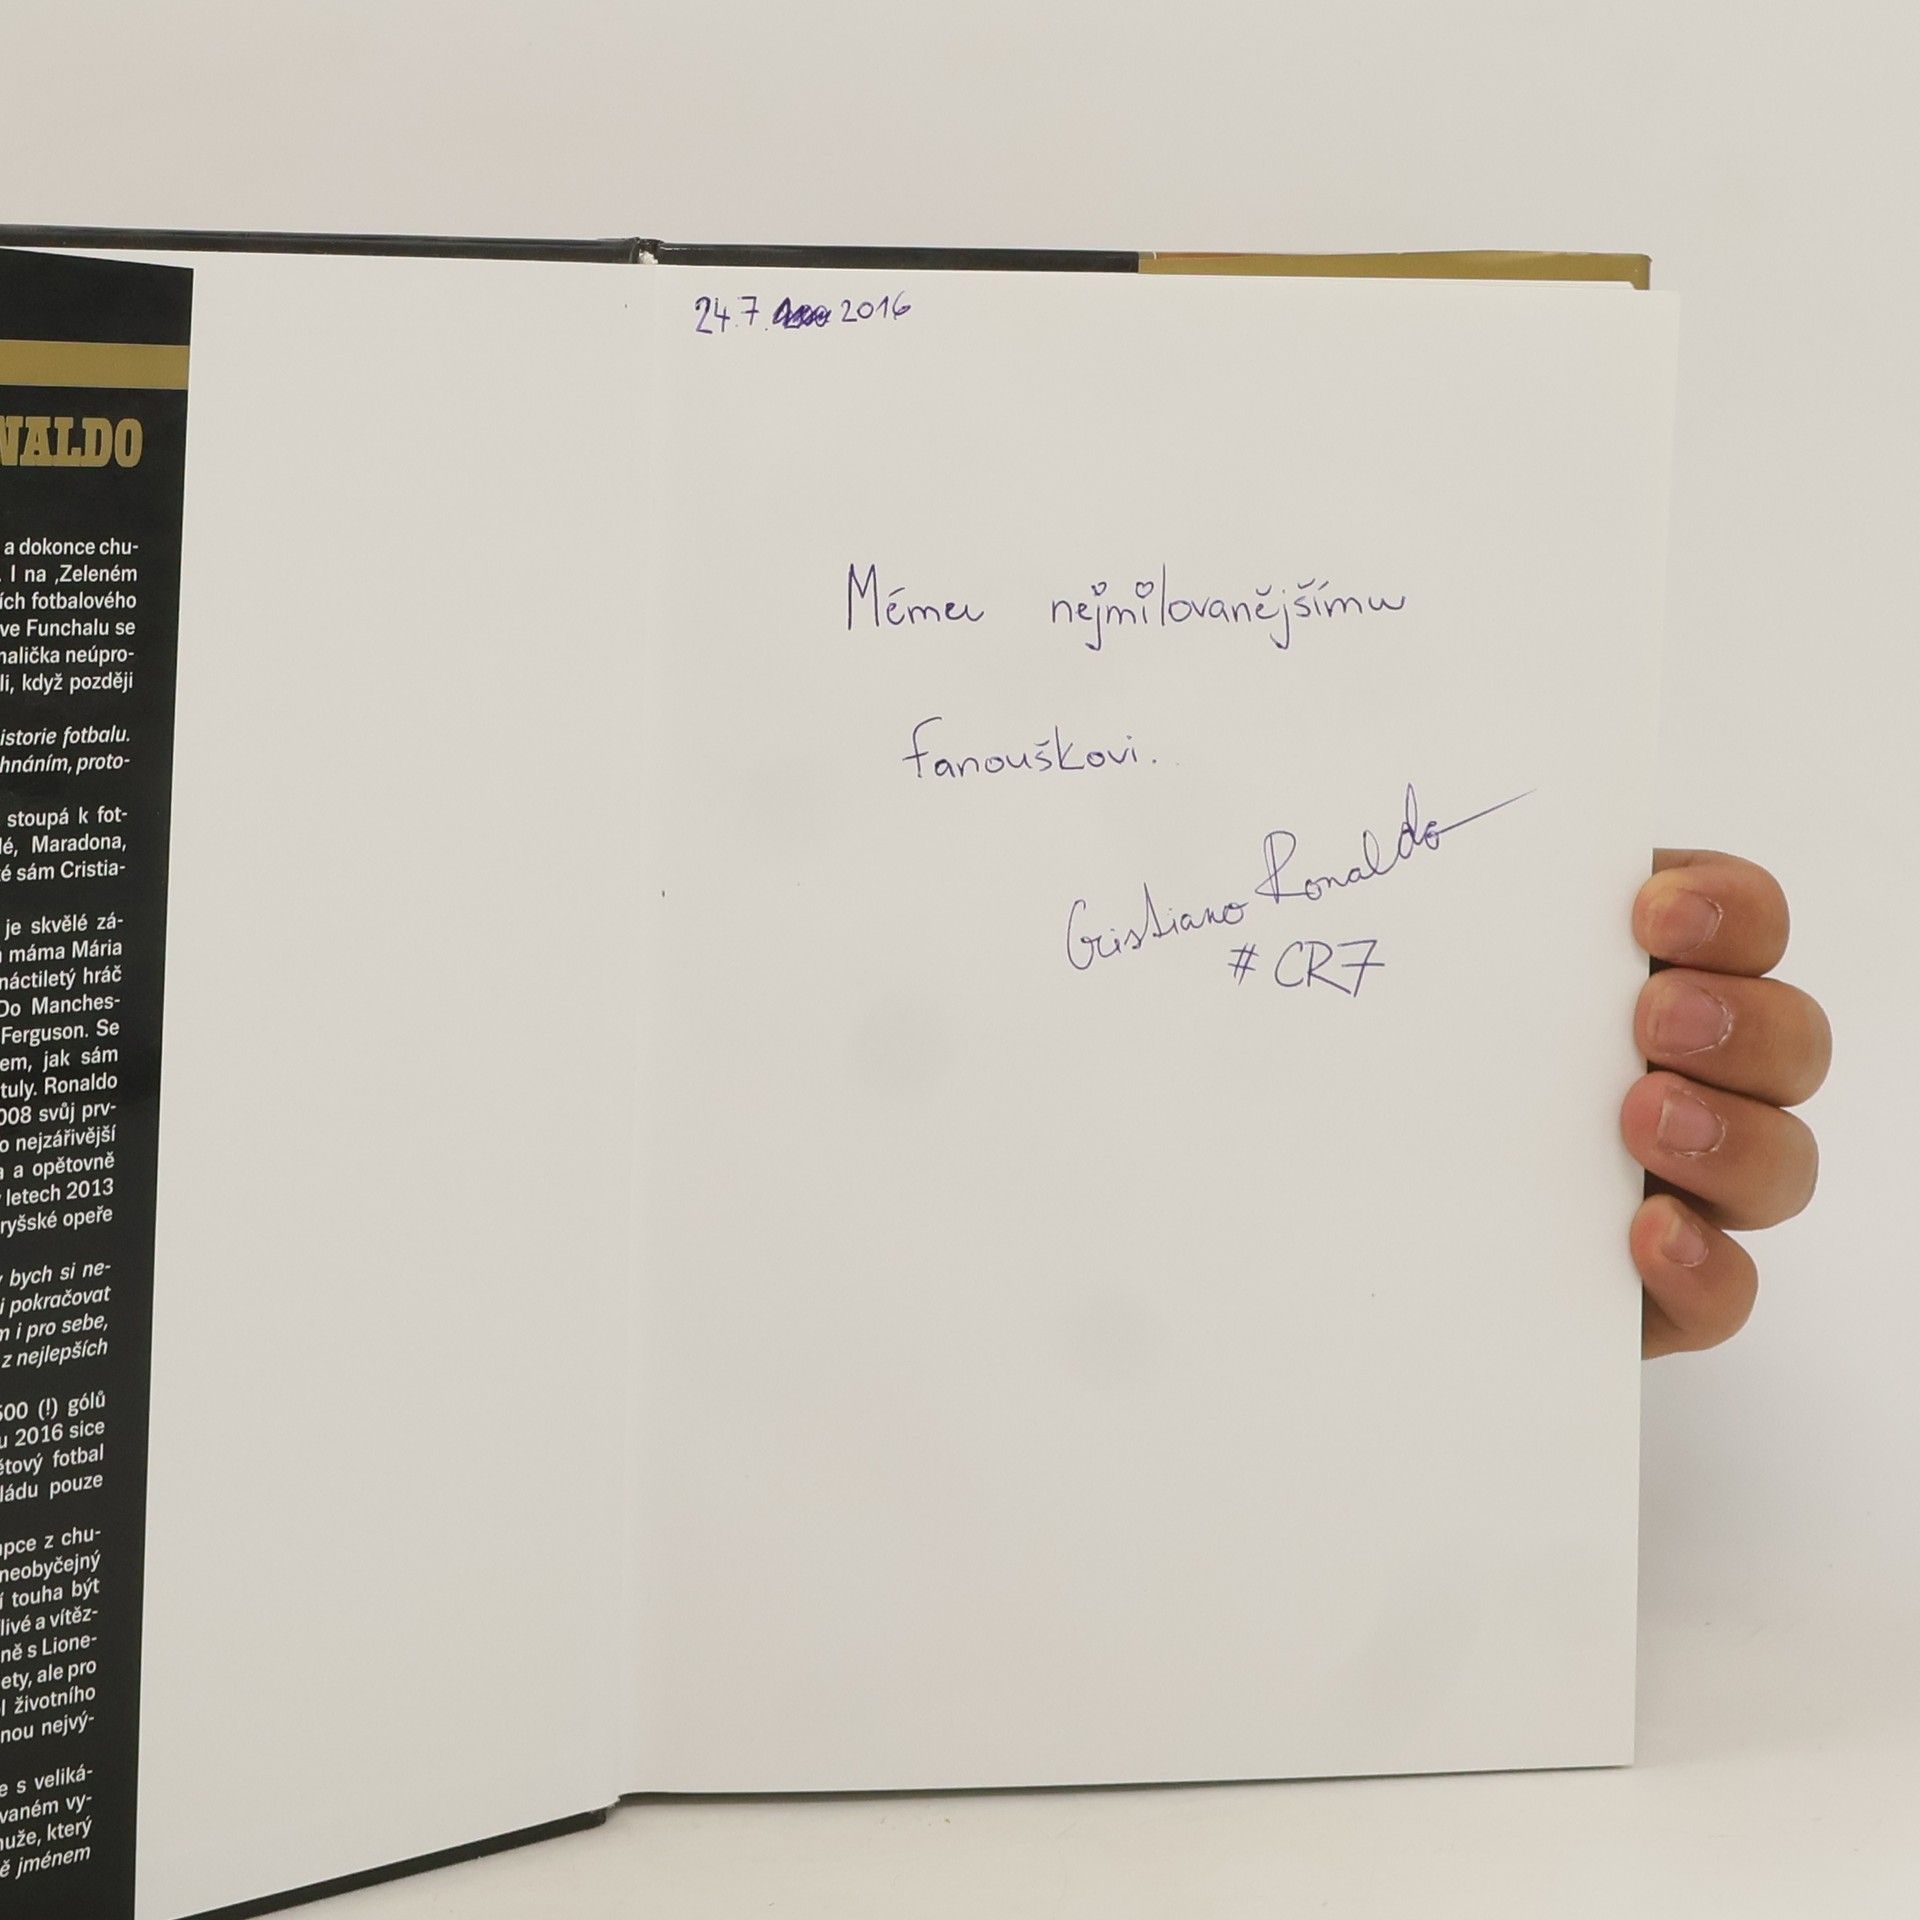 NALDO
a dokonce chu-
. I na ‚Zeleném
ích fotbalového
ve Funchalu se
nalička neúpro-
li, když později
istorie fotbalu.
hnáním, proto-
stoupá k fot-
lé, Maradona,
é sám Cristia-
je skvělé zá-
máma Mária
náctiletý hráč
Do Manches-
Ferguson. Se
em, jak sám
tuly. Ronaldo
008 svůj prv-
o nejzářivější
a a opětovně
letech 2013
ryšské opeře
bych si ne-
i pokračovat
m i pro sebe,
z nejlepších
500 (!) gólů
u 2016 sice
ětový fotbal
ládu pouze
apce z chu-
neobyčejný
í touha být
livé a vítěz-
ně s Lione-
ety, ale pro
l životního
nou nejvý-
e s veliká-
vaném vy-
nuže, který
ě jménem
24.7. 2016
Mému nejmilovanějšímu
fanouškovi.
Cristiano Ronaldo
# CR7